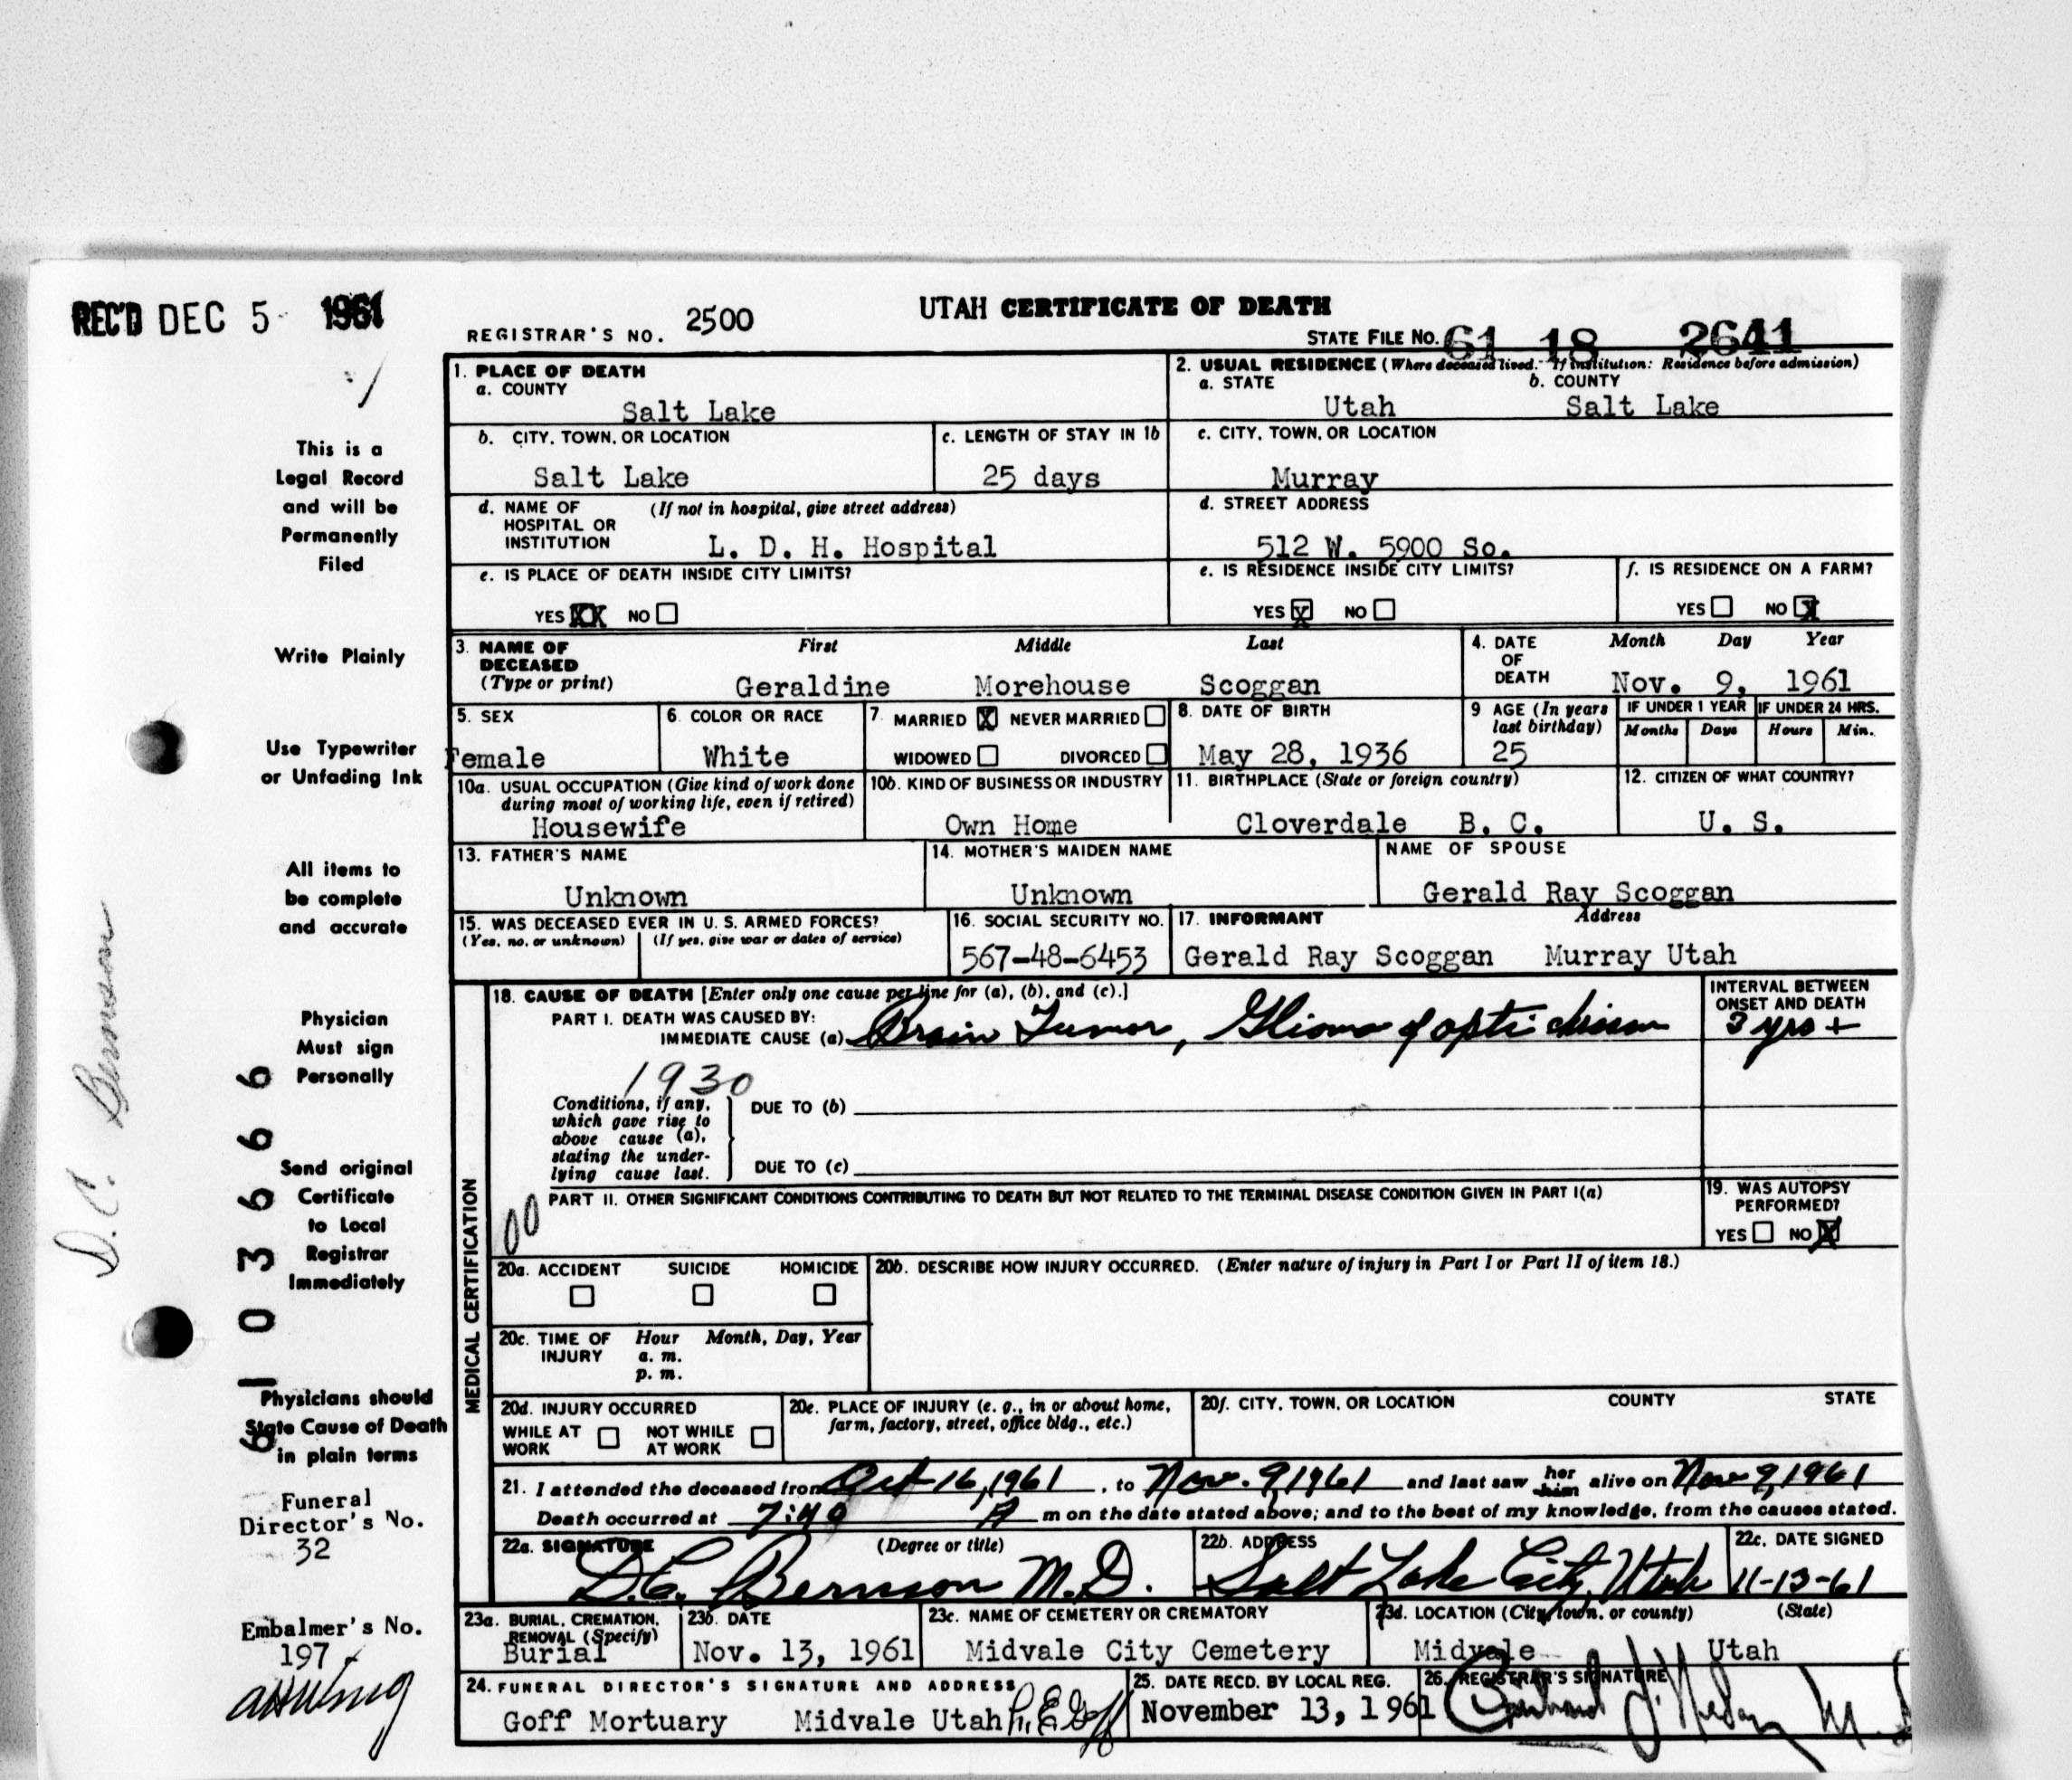 REC'D DEC 5 1961
UTAH CERTIFICATE OF DEATH
REGISTRAR'S NO. 2500
STATE FILE NO. 61 18 2641
1. PLACE OF DEATH
a. COUNTY
Salt Lake
2. USUAL RESIDENCE (Where deceased lived. If institution: Residence before admission)
a. STATE b. COUNTY
Utah Salt Lake
b. CITY, TOWN, OR LOCATION
Salt Lake
c. LENGTH OF STAY IN 1b
25 days
c. CITY, TOWN, OR LOCATION
Murray
d. NAME OF HOSPITAL OR INSTITUTION (If not in hospital, give street address)
L. D. H. Hospital
d. STREET ADDRESS
512 W. 5900 So.
e. IS PLACE OF DEATH INSIDE CITY LIMITS?
YES XX NO
e. IS RESIDENCE INSIDE CITY LIMITS?
YES X NO
f. IS RESIDENCE ON A FARM?
YES NO X
3. NAME OF DECEASED (Type or print)
First Middle Last
Geraldine Morehouse Scoggan
4. DATE OF DEATH
Month Day Year
Nov. 9, 1961
5. SEX
Female
6. COLOR OR RACE
White
7. MARRIED X NEVER MARRIED
WIDOWED DIVORCED
8. DATE OF BIRTH
May 28, 1936
9 AGE (In years last birthday)
25
IF UNDER 1 YEAR
Months Days
IF UNDER 24 HRS.
Hours Min.
10a. USUAL OCCUPATION (Give kind of work done during most of working life, even if retired)
Housewife
10b. KIND OF BUSINESS OR INDUSTRY
Own Home
11. BIRTHPLACE (State or foreign country)
Cloverdale B. C.
12. CITIZEN OF WHAT COUNTRY?
U. S.
13. FATHER'S NAME
Unknown
14. MOTHER'S MAIDEN NAME
Unknown
NAME OF SPOUSE
Gerald Ray Scoggan
15. WAS DECEASED EVER IN U. S. ARMED FORCES?
(Yes, no, or unknown) (If yes, give war or dates of service)
16. SOCIAL SECURITY NO.
567-48-6453
17. INFORMANT Address
Gerald Ray Scoggan Murray Utah
MEDICAL CERTIFICATION
18. CAUSE OF DEATH [Enter only one cause per line for (a), (b), and (c).]
PART I. DEATH WAS CAUSED BY:
IMMEDIATE CAUSE (a) Brain Tumor, Glioma of optic chiasm
INTERVAL BETWEEN ONSET AND DEATH
3 yrs +
1930
Conditions, if any, which gave rise to above cause (a), stating the underlying cause last.
DUE TO (b)
DUE TO (c)
00
PART II. OTHER SIGNIFICANT CONDITIONS CONTRIBUTING TO DEATH BUT NOT RELATED TO THE TERMINAL DISEASE CONDITION GIVEN IN PART I(a)
19. WAS AUTOPSY PERFORMED?
YES NO X
20a. ACCIDENT SUICIDE HOMICIDE
20b. DESCRIBE HOW INJURY OCCURRED. (Enter nature of injury in Part I or Part II of item 18.)
20c. TIME OF INJURY Hour Month, Day, Year
a. m.
p. m.
20d. INJURY OCCURRED
WHILE AT WORK NOT WHILE AT WORK
20e. PLACE OF INJURY (e. g., in or about home, farm, factory, street, office bldg., etc.)
20f. CITY, TOWN, OR LOCATION COUNTY STATE
21. I attended the deceased from Oct 16, 1961, to Nov. 9, 1961 and last saw her him alive on Nov 9, 1961
Death occurred at 7:40 A m on the date stated above; and to the best of my knowledge, from the causes stated.
22a. SIGNATURE (Degree or title)
D.C. Bernson M.D.
22b. ADDRESS
Salt Lake City, Utah
22c. DATE SIGNED
11-13-61
23a. BURIAL, CREMATION, REMOVAL (Specify)
Burial
23b. DATE
Nov. 13, 1961
23c. NAME OF CEMETERY OR CREMATORY
Midvale City Cemetery
23d. LOCATION (City, town, or county) (State)
Midvale Utah
24. FUNERAL DIRECTOR'S SIGNATURE AND ADDRESS
Goff Mortuary Midvale Utah
25. DATE RECD. BY LOCAL REG.
November 13, 1961
26. REGISTRAR'S SIGNATURE
This is a
Legal Record
and will be
Permanently
Filed
Write Plainly
Use Typewriter
or Unfading Ink
All items to
be complete
and accurate
Physician
Must sign
Personally
Send original
Certificate
to Local
Registrar
Immediately
Physicians should
State Cause of Death
in plain terms
Funeral
Director's No.
32
Embalmer's No.
197
D.C. Bernson
6103666